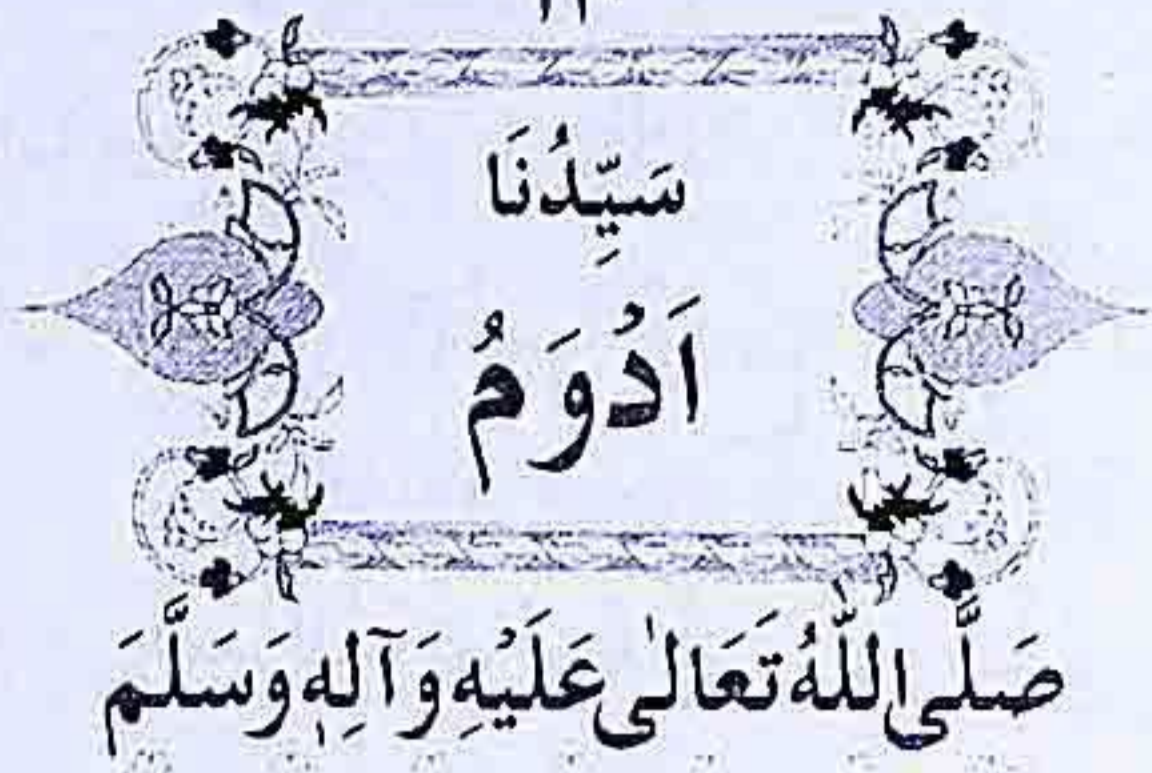 سَيِّدُنَا
اَدْوَمُ
صَلَّى اللّٰهُ تَعَالٰى عَلَيْهِ وَآلِهٖ وَسَلَّمَ